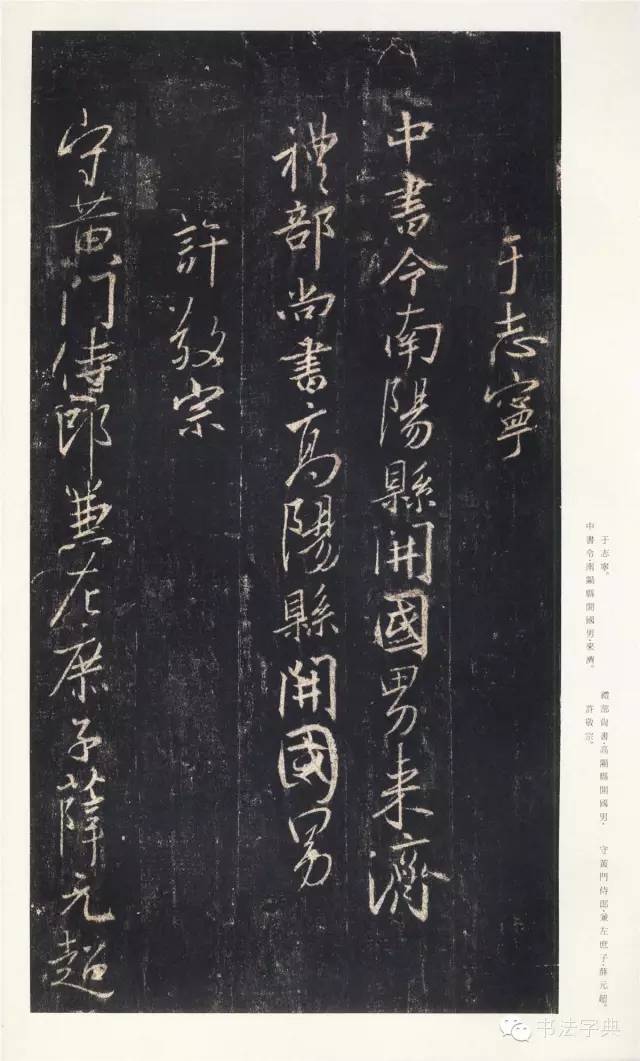 于志寧
中書令南陽縣開國男来濟
禮部尚書高陽縣開國男
許敬宗
守黃門侍郎兼左庶子薛元超
于志寧。
中書令·南陽縣開國男·來濟。
禮部尚書·高陽縣開國男·
許敬宗。
守黃門侍郎·兼左庶子·薛元超。
书法字典